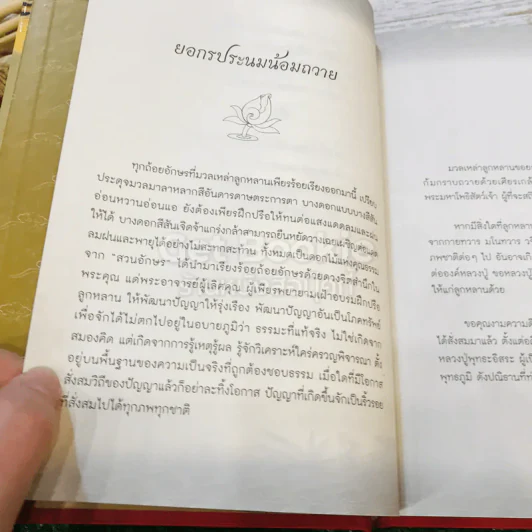 ยอกรประนมน้อมถวาย
ทุกถ้อยอักษรที่มวลเหล่าลูกหลานเพียรร้อยเรียงออกมานี้ เปรียบ
ประดุจมวลมาลาหลากสีอันดารดาษตระการตา บางดอกแบบบางสีสัน
อ่อนหวานอ่อนแอ ยังต้องเพียรฝึกปรือให้ทนต่อแสงแดดลมและฝน
ให้ได้ บางดอกสีสันเจิดจ้าแกร่งกล้าสามารถยืนหยัดวางเฉยเผชิญต่อแดด
ลมฝนและพายุได้อย่างไม่สะทกสะท้าน ทั้งหมดเป็นดอกไม้แห่งคุณธรรม
จาก "สวนอักษร" ได้นำมาเรียงร้อยถ้อยอักษรด้วยดวงจิตสำนึกใน
พระคุณ แด่พระอาจารย์ผู้เลิศคุณ ผู้เพียรพยายามเฝ้าอบรมฝึกปรือ
ลูกหลาน ให้พัฒนาปัญญาให้รุ่งเรือง พัฒนาปัญญาอันเป็นโภคทรัพย์
เพื่อจักได้ไม่ตกไปอยู่ในอบายภูมิว่า ธรรมะที่แท้จริง ไม่ใช่เกิดจาก
สมองคิด แต่เกิดจากการรู้เหตุรู้ผล รู้จักวิเคราะห์ใคร่ครวญพิจารณา ตั้ง
อยู่บนพื้นฐานของความเป็นจริงที่ถูกต้องชอบธรรม เมื่อใดที่มีโอกาส
สั่งสมวิถีของปัญญาแล้วก็อย่าละทิ้งโอกาส ปัญญาที่เกิดขึ้นจักเป็นริ้วรอย
ที่สั่งสมไปได้ทุกภพทุกชาติ
มวลเหล่าลูกหลานขอย
ก้มกราบถวายด้วยเศียรเกล้
พระมหาโพธิสัตว์เจ้า ผู้ที่จะ
หากมีสิ่งใดที่ลูกหลาน
จากกายทวาร มโนทวาร
ภพชาติต่อๆ ไป อันอาจเกิ
ต่อองค์หลวงปู่ ขอหลวงปู่
ให้แก่ลูกหลานด้วย
ขอคุณงามความดี
ได้สั่งสมมาแล้ว ตั้งแต่
หลวงปู่พุทธะอิสระ ผู้เป็
พุทธภูมิ ดังปณิธานที่